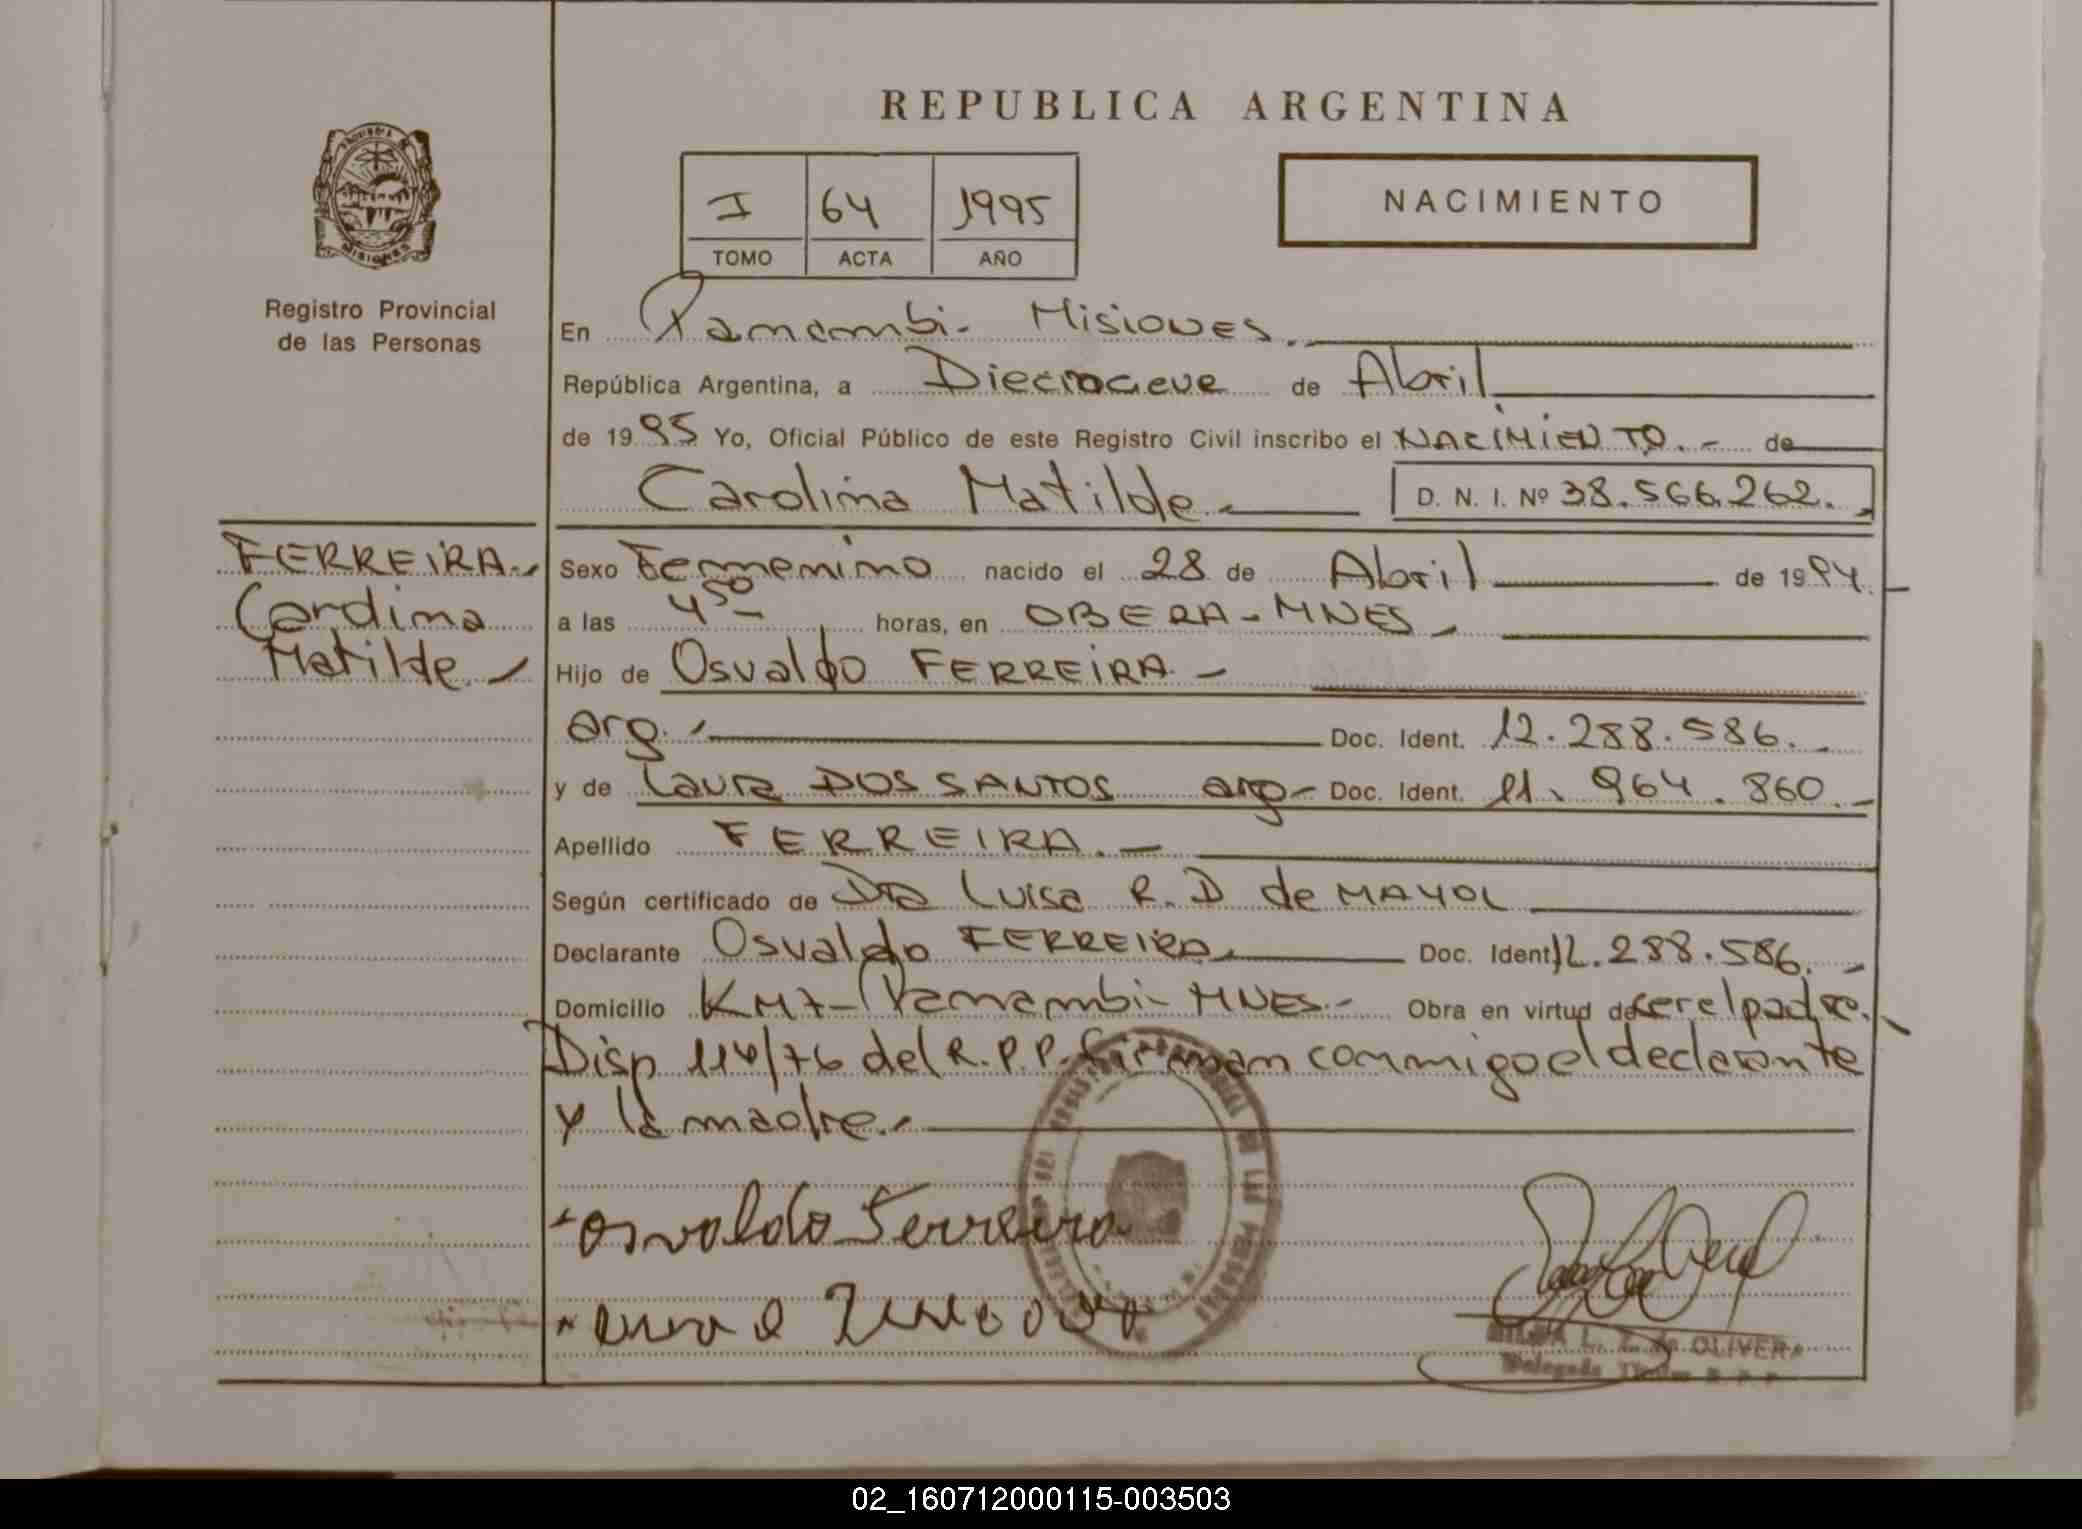 REPUBLICA ARGENTINA
I 64 1995
TOMO ACTA AÑO
NACIMIENTO
MISIONES
Registro Provincial
de las Personas
En Panambi - Misiones.
República Argentina, a Diecinueve de Abril
de 1995 Yo, Oficial Público de este Registro Civil inscribo el NACIMIENTO.- de
Carolina Matilde.- D. N. I. Nº 38.566.262.
FERREIRA.-
Carolina
Matilde.-
Sexo Femenino nacido el 28 de Abril de 1994.
a las 4 50 horas, en OBERA - MNES -
Hijo de Osvaldo FERREIRA -
arg. - Doc. Ident. 12.288.586.-
y de Laura DOS SANTOS arg - Doc. Ident. 11.964.860.-
Apellido FERREIRA.-
Según certificado de Dra Luisa R. D de MAYOL
Declarante Osvaldo FERREIRA.- Doc. Ident 12.288.586.-
Domicilio KM 7 - Panambi - MNES.- Obra en virtud de ser el padre.
Disp 114/76 del R.P.P. firman conmigo el declarante
y la madre.-
Osvaldo Ferreira
L. Z. de OLIVERA
Delegada Titular R. P. P.
02_160712000115-003503